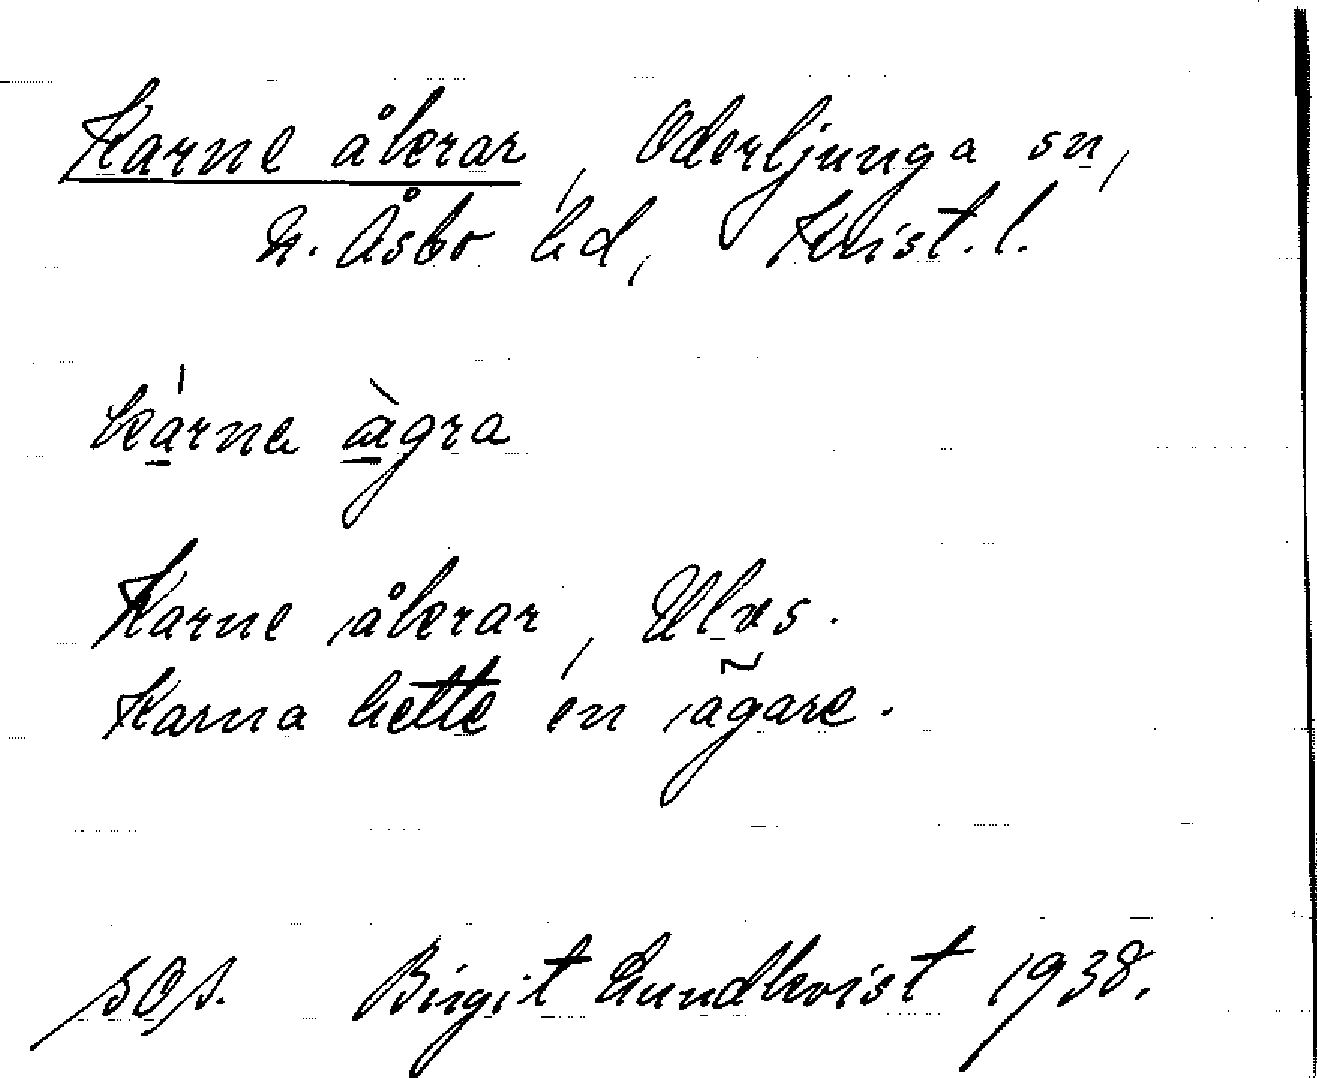 Karne åkrar, Oderljunga sn,
N. Åsbo hd, Krist. l.
kárna àgra
Karne åkrar, Ulvs.
Karna hette en ägare.
SOS. Birgit Lundkvist 1938.